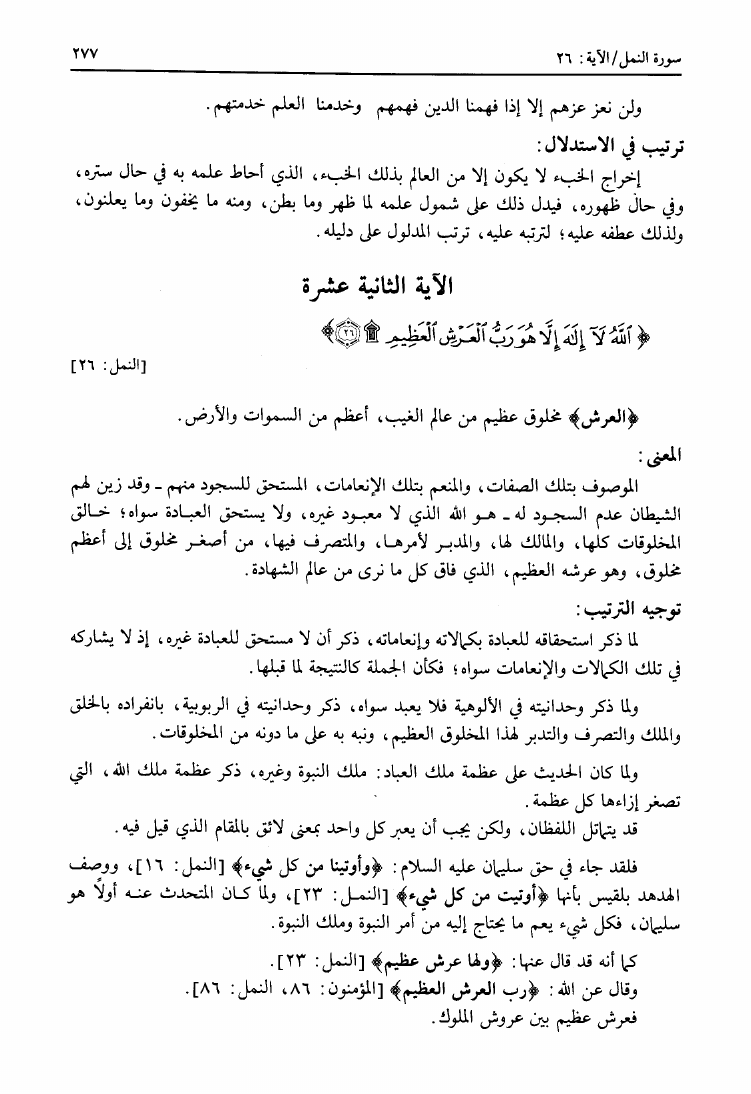 سورة النمل/الآية: ٢٦
٢٧٧
ولن نعز عزهم إلا إذا فهمنا الدين فهمهم وخدمنا العلم خدمتهم.
ترتيب في الاستدلال:
إخراج الخبء لا يكون إلا من العالم بذلك الخبء، الذي أحاط علمه به في حال ستره،
وفي حال ظهوره، فيدل ذلك على شمول علمه لما ظهر وما بطن، ومنه ما يخفون وما يعلنون،
ولذلك عطفه عليه؛ لترتبه عليه، ترتب المدلول على دليله.
الآية الثانية عشرة
﴿ ٱللَّهُ لَآ إِلَٰهَ إِلَّا هُوَ رَبُّ ٱلْعَرْشِ ٱلْعَظِيمِ ۩ ٢٦ ﴾
[النمل: ٢٦]
﴿العرش﴾ مخلوق عظيم من عالم الغيب، أعظم من السموات والأرض.
المعنى:
الموصوف بتلك الصفات، والمنعم بتلك الإنعامات، المستحق للسجود منهم ـ وقد زين لهم
الشيطان عدم السجود له ـ هو الله الذي لا معبود غيره، ولا يستحق العبادة سواه؛ خالق
المخلوقات كلها، والمالك لها، والمدبر لأمرها، والمتصرف فيها، من أصغر مخلوق إلى أعظم
مخلوق، وهو عرشه العظيم، الذي فاق كل ما نرى من عالم الشهادة.
توجيه الترتيب:
لما ذكر استحقاقه للعبادة بكمالاته وإنعاماته، ذكر أن لا مستحق للعبادة غيره، إذ لا يشاركه
في تلك الكمالات والإنعامات سواه؛ فكأن الجملة كالنتيجة لما قبلها.
ولما ذكر وحدانيته في الألوهية فلا يعبد سواه، ذكر وحدانيته في الربوبية، بانفراده بالخلق
والملك والتصرف والتدبر لهذا المخلوق العظيم، ونبه به على ما دونه من المخلوقات.
ولما كان الحديث على عظمة ملك العباد: ملك النبوة وغيره، ذكر عظمة ملك الله، التي
تصغر إزاءها كل عظمة.
قد يتماثل اللفظان، ولكن يجب أن يعبر كل واحد بمعنى لائق بالمقام الذي قيل فيه.
فلقد جاء في حق سليمان عليه السلام: ﴿وأوتينا من كل شيء﴾ [النمل: ١٦]، ووصف
الهدهد بلقيس بأنها ﴿أوتيت من كل شيء﴾ [النمل: ٢٣]، ولما كان المتحدث عنه أولاً هو
سليمان، فكل شيء يعم ما يحتاج إليه من أمر النبوة وملك النبوة.
كما أنه قد قال عنها: ﴿ولها عرش عظيم﴾ [النمل: ٢٣].
وقال عن الله: ﴿رب العرش العظيم﴾ [المؤمنون: ٨٦، النمل: ٨٦].
فعرش عظيم بين عروش الملوك.